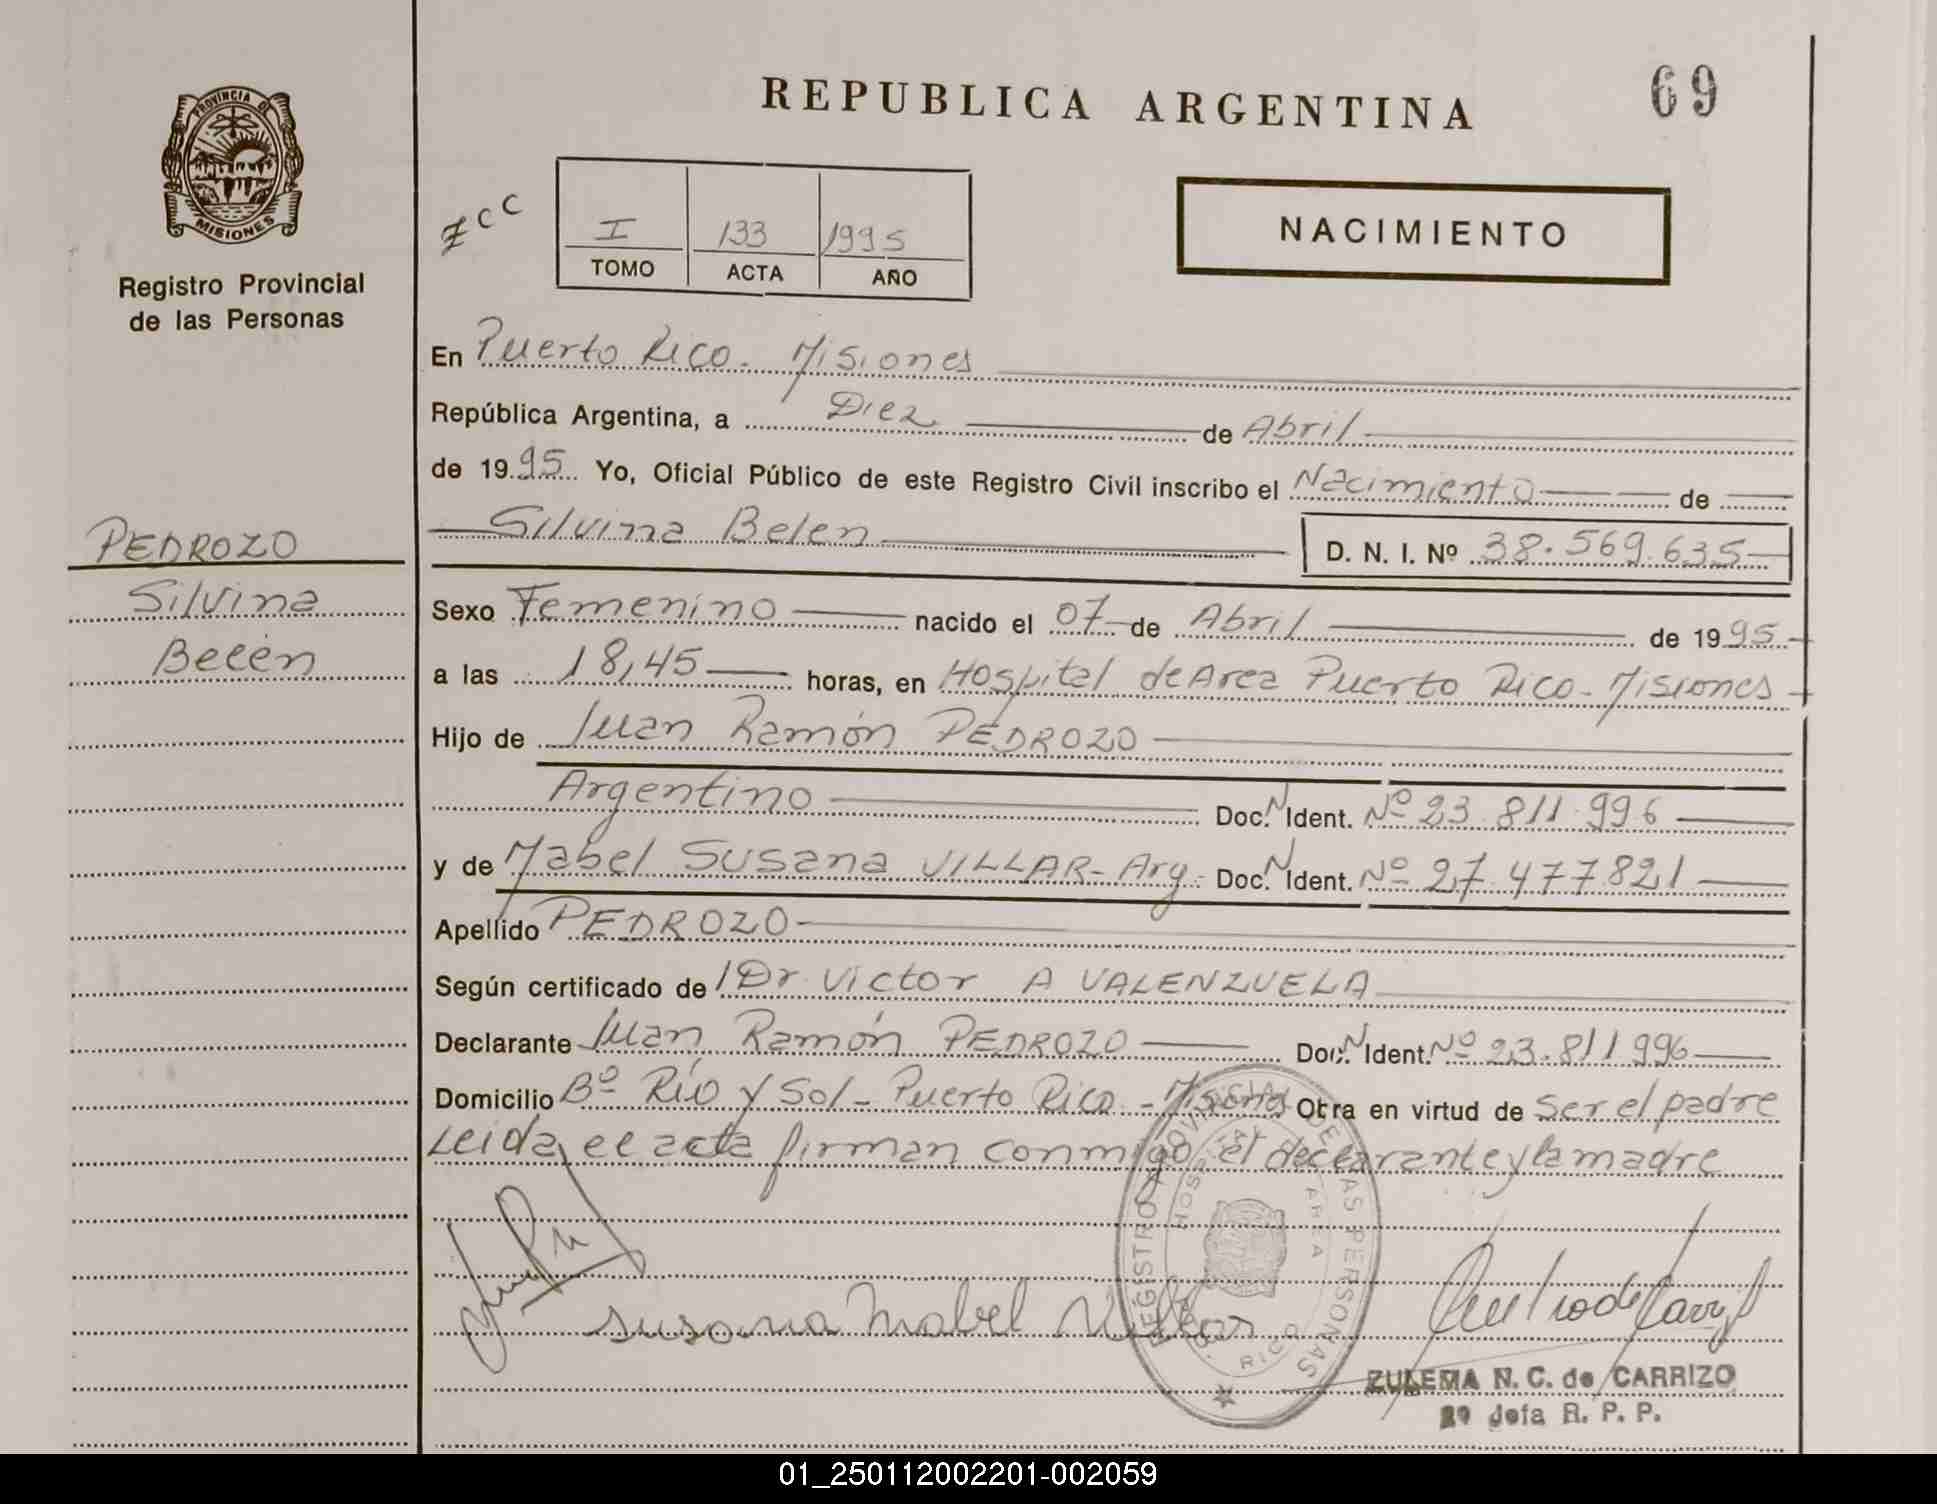 REPUBLICA ARGENTINA
69
PROVINCIA DE
MISIONES
Registro Provincial
de las Personas
I 133 1995
TOMO ACTA AÑO
NACIMIENTO
En Puerto Rico. Misiones
República Argentina, a Diez de Abril
de 1995 Yo, Oficial Público de este Registro Civil inscribo el Nacimiento de
Silvina Belen D. N. I. Nº 38.569.635
PEDROZO
Silvina
Belén
Sexo Femenino nacido el 07 de Abril de 1995
a las 18,45 horas, en Hospital de Area Puerto Rico - Misiones
Hijo de Juan Ramón PEDROZO
Argentino Doc. N Ident. Nº 23.811.996
y de Mabel Susana VILLAR - Arg. Doc. N Ident. Nº 27.477.821
Apellido PEDROZO
Según certificado de Dr. Victor A VALENZUELA
Declarante Juan Ramón PEDROZO Doc. N Ident. Nº 23.811.996
Domicilio Bº Río y Sol - Puerto Rico - Misiones Obra en virtud de Ser el padre
Leida el acta firman conmigo el declarante y la madre
REGISTRO PROVINCIAL DE LAS PERSONAS
HOSPITAL AREA
RICO
Susana Mabel Villar
ZULEMA N. C. de CARRIZO
2º Jefa R. P. P.
01_250112002201-002059